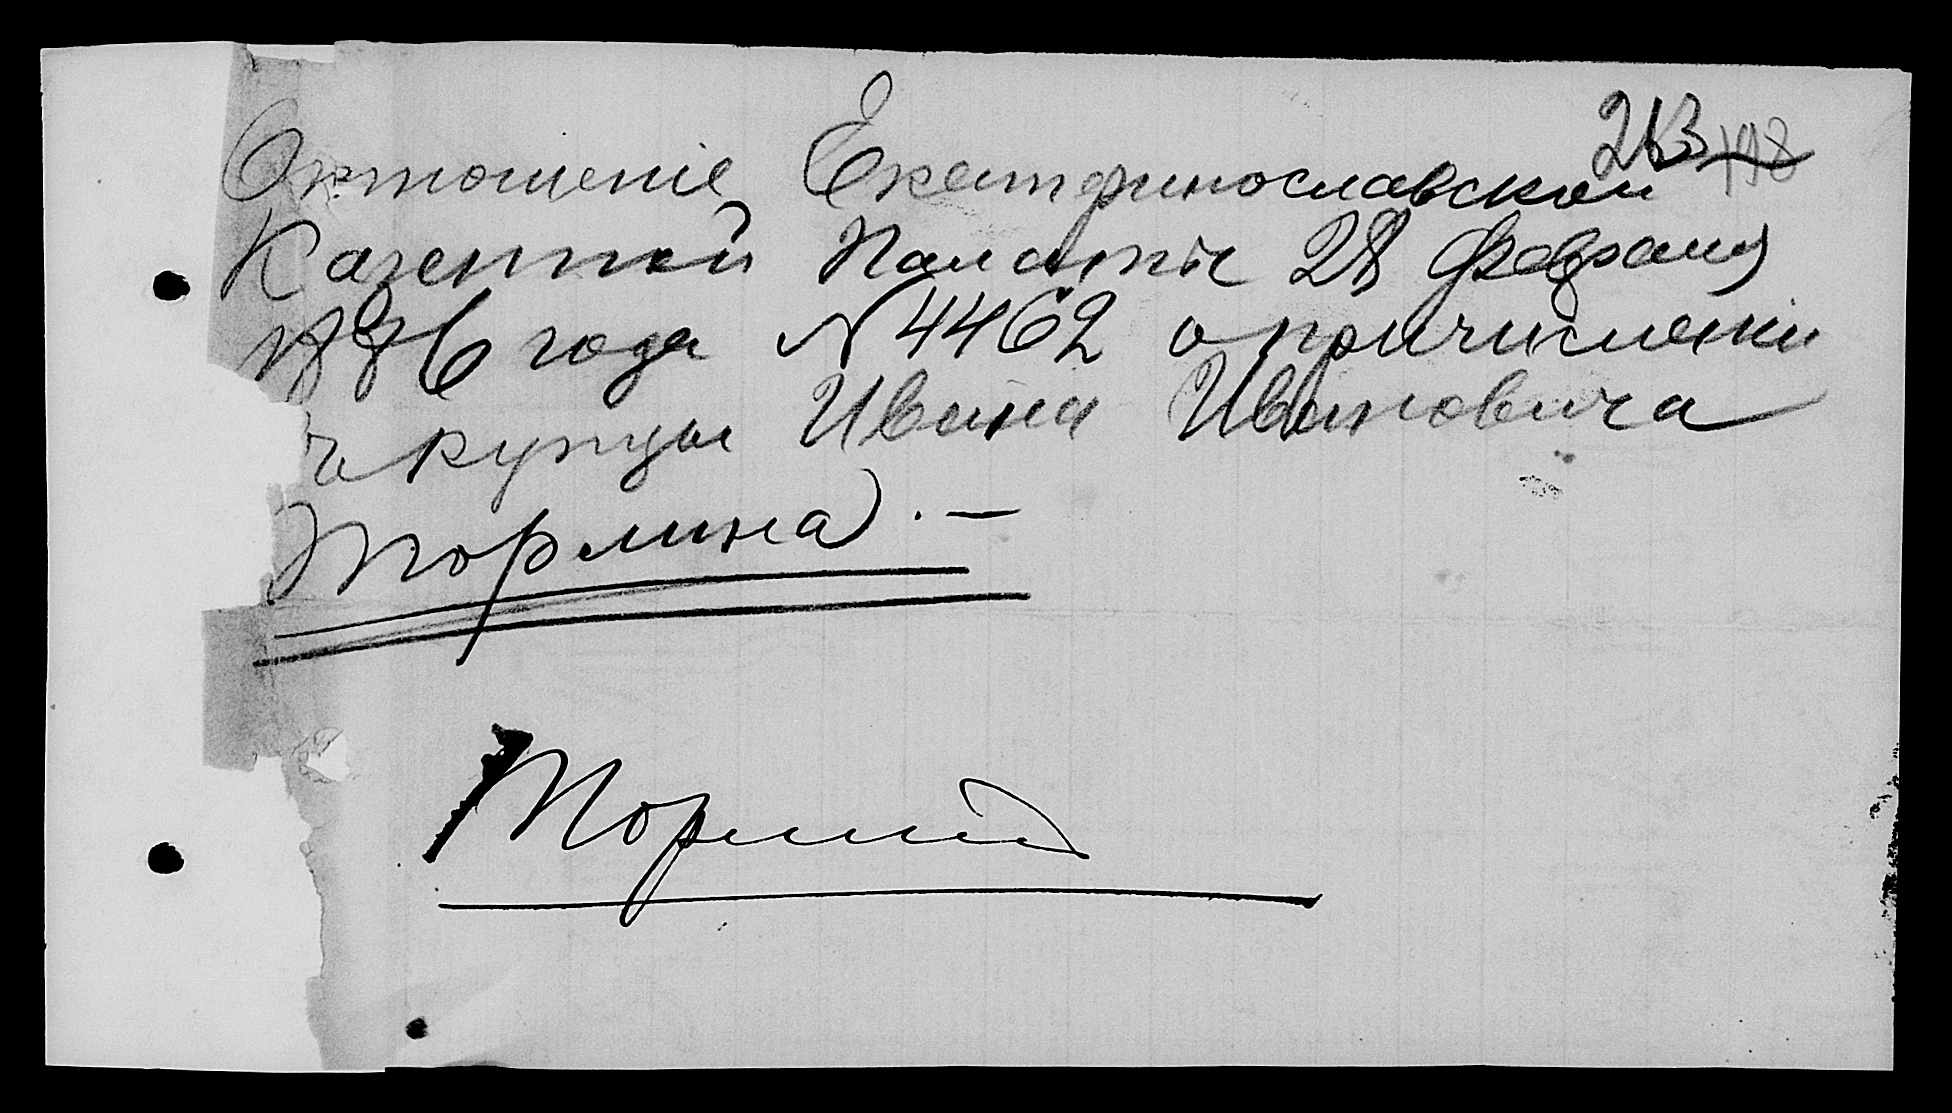 213 198
Октошеніе Екатеринославской
Казенной Палаты 28 Февраля
1886 года N 4462 о причислении
в купцы Ивана Ивановича
Тормина. —
Тормин